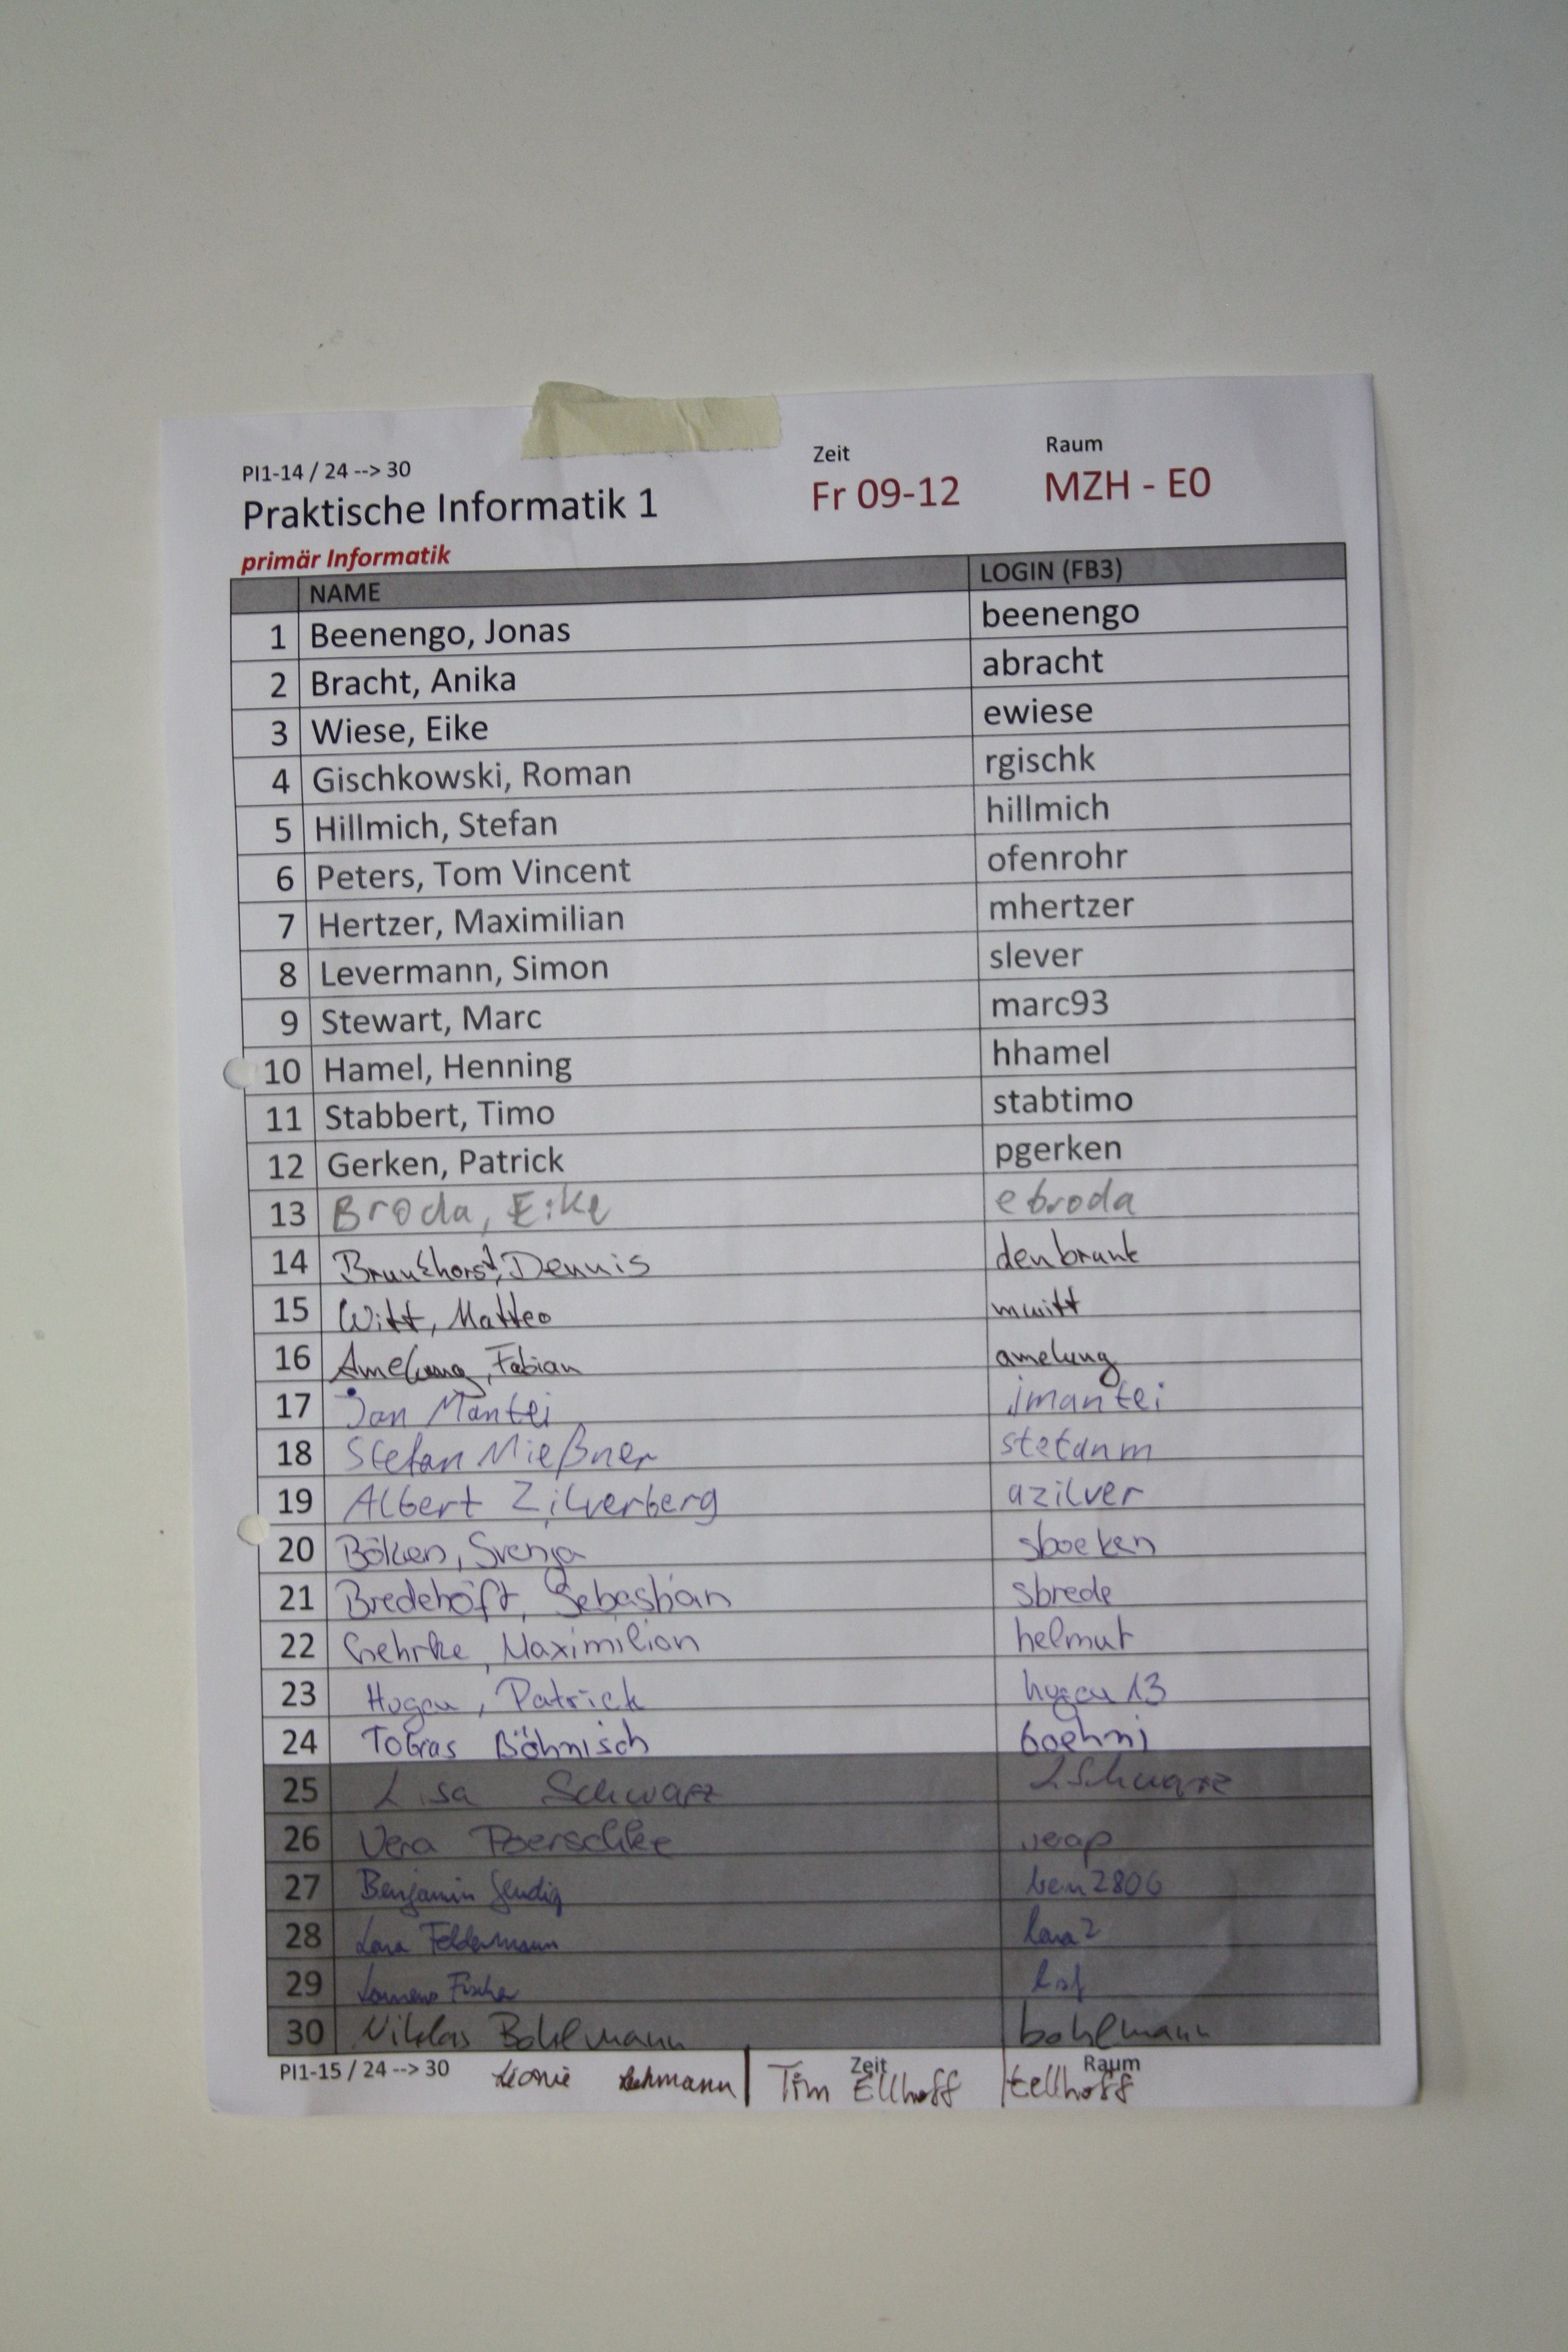 PI1-14 / 24 --> 30 Zeit Raum
Praktische Informatik 1 Fr 09-12 MZH - E0
primär Informatik
NAME LOGIN (FB3)
1 Beenengo, Jonas beenengo
2 Bracht, Anika abracht
3 Wiese, Eike ewiese
4 Gischkowski, Roman rgischk
5 Hillmich, Stefan hillmich
6 Peters, Tom Vincent ofenrohr
7 Hertzer, Maximilian mhertzer
8 Levermann, Simon slever
9 Stewart, Marc marc93
10 Hamel, Henning hhamel
11 Stabbert, Timo stabtimo
12 Gerken, Patrick pgerken
13 Broda, Eike ebroda
14 Brunkhorst, Dennis denbrunk
15 Witt, Matteo mwitt
16 Amelung, Fabian amelung
17 Jan Mantei jmantei
18 Stefan Mießner stefanm
19 Albert Zilverberg azilver
20 Böken, Svenja sboeken
21 Bredehöft, Sebastian sbrede
22 Gehrke, Maximilian helmut
23 Hogau, Patrick
24 Tobias Böhnisch boehni
25 Lisa Schwarz LSchwarz
26 Vera Poerschke verap
27 Benjamin ben2806
28 Lara Feldermann lara2
29 Fischer
30 Niklas Bohlmann bohlmann
PI1-15 / 24 --> 30 Zeit Raum
Leonie Lehmann | Tim Ellhoff | tellhoff